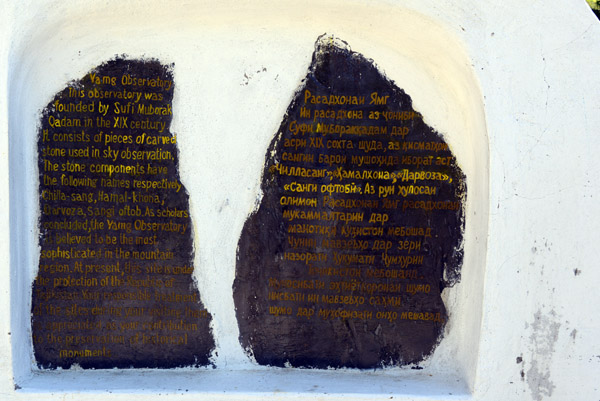 Yamg Observatory
This observatory was
founded by Sufi Muborak
Qadam in the XIX century.
It consists of pieces of carved
stone used in sky observation.
The stone components have
the following names respectively
Chilla-sang, Hamal-khona,
Darveza, Sangi oftob. As scholars
concluded, the Yamg Observatory
is believed to be the most
sophisticated in the mountain
region. At present, this site is under
the protection of the
of the site
contribution
to the preservation of historical
monuments.
Расадхонаи Ямг
Ин расадхона аз ҷониби
Суфи Муборакқадам дар
асри XIX сохта шуда, аз қисматҳои
сангии барои мушоҳида иборат аст
"Чилласанг", "Ҳамалхона", "Дарвоза",
"Санги офтобӣ". Аз рӯи хулосаи
олимон Расадхонаи Ямг расадхонаи
мукаммалтарин дар
кӯҳистон мебошад
дар зери
назорати Ҳукумати Ҷумҳурии
мебошад
шумо
нисбати ин мавзеъҳо саҳми
шумо дар муҳофизати онҳо мебошад.